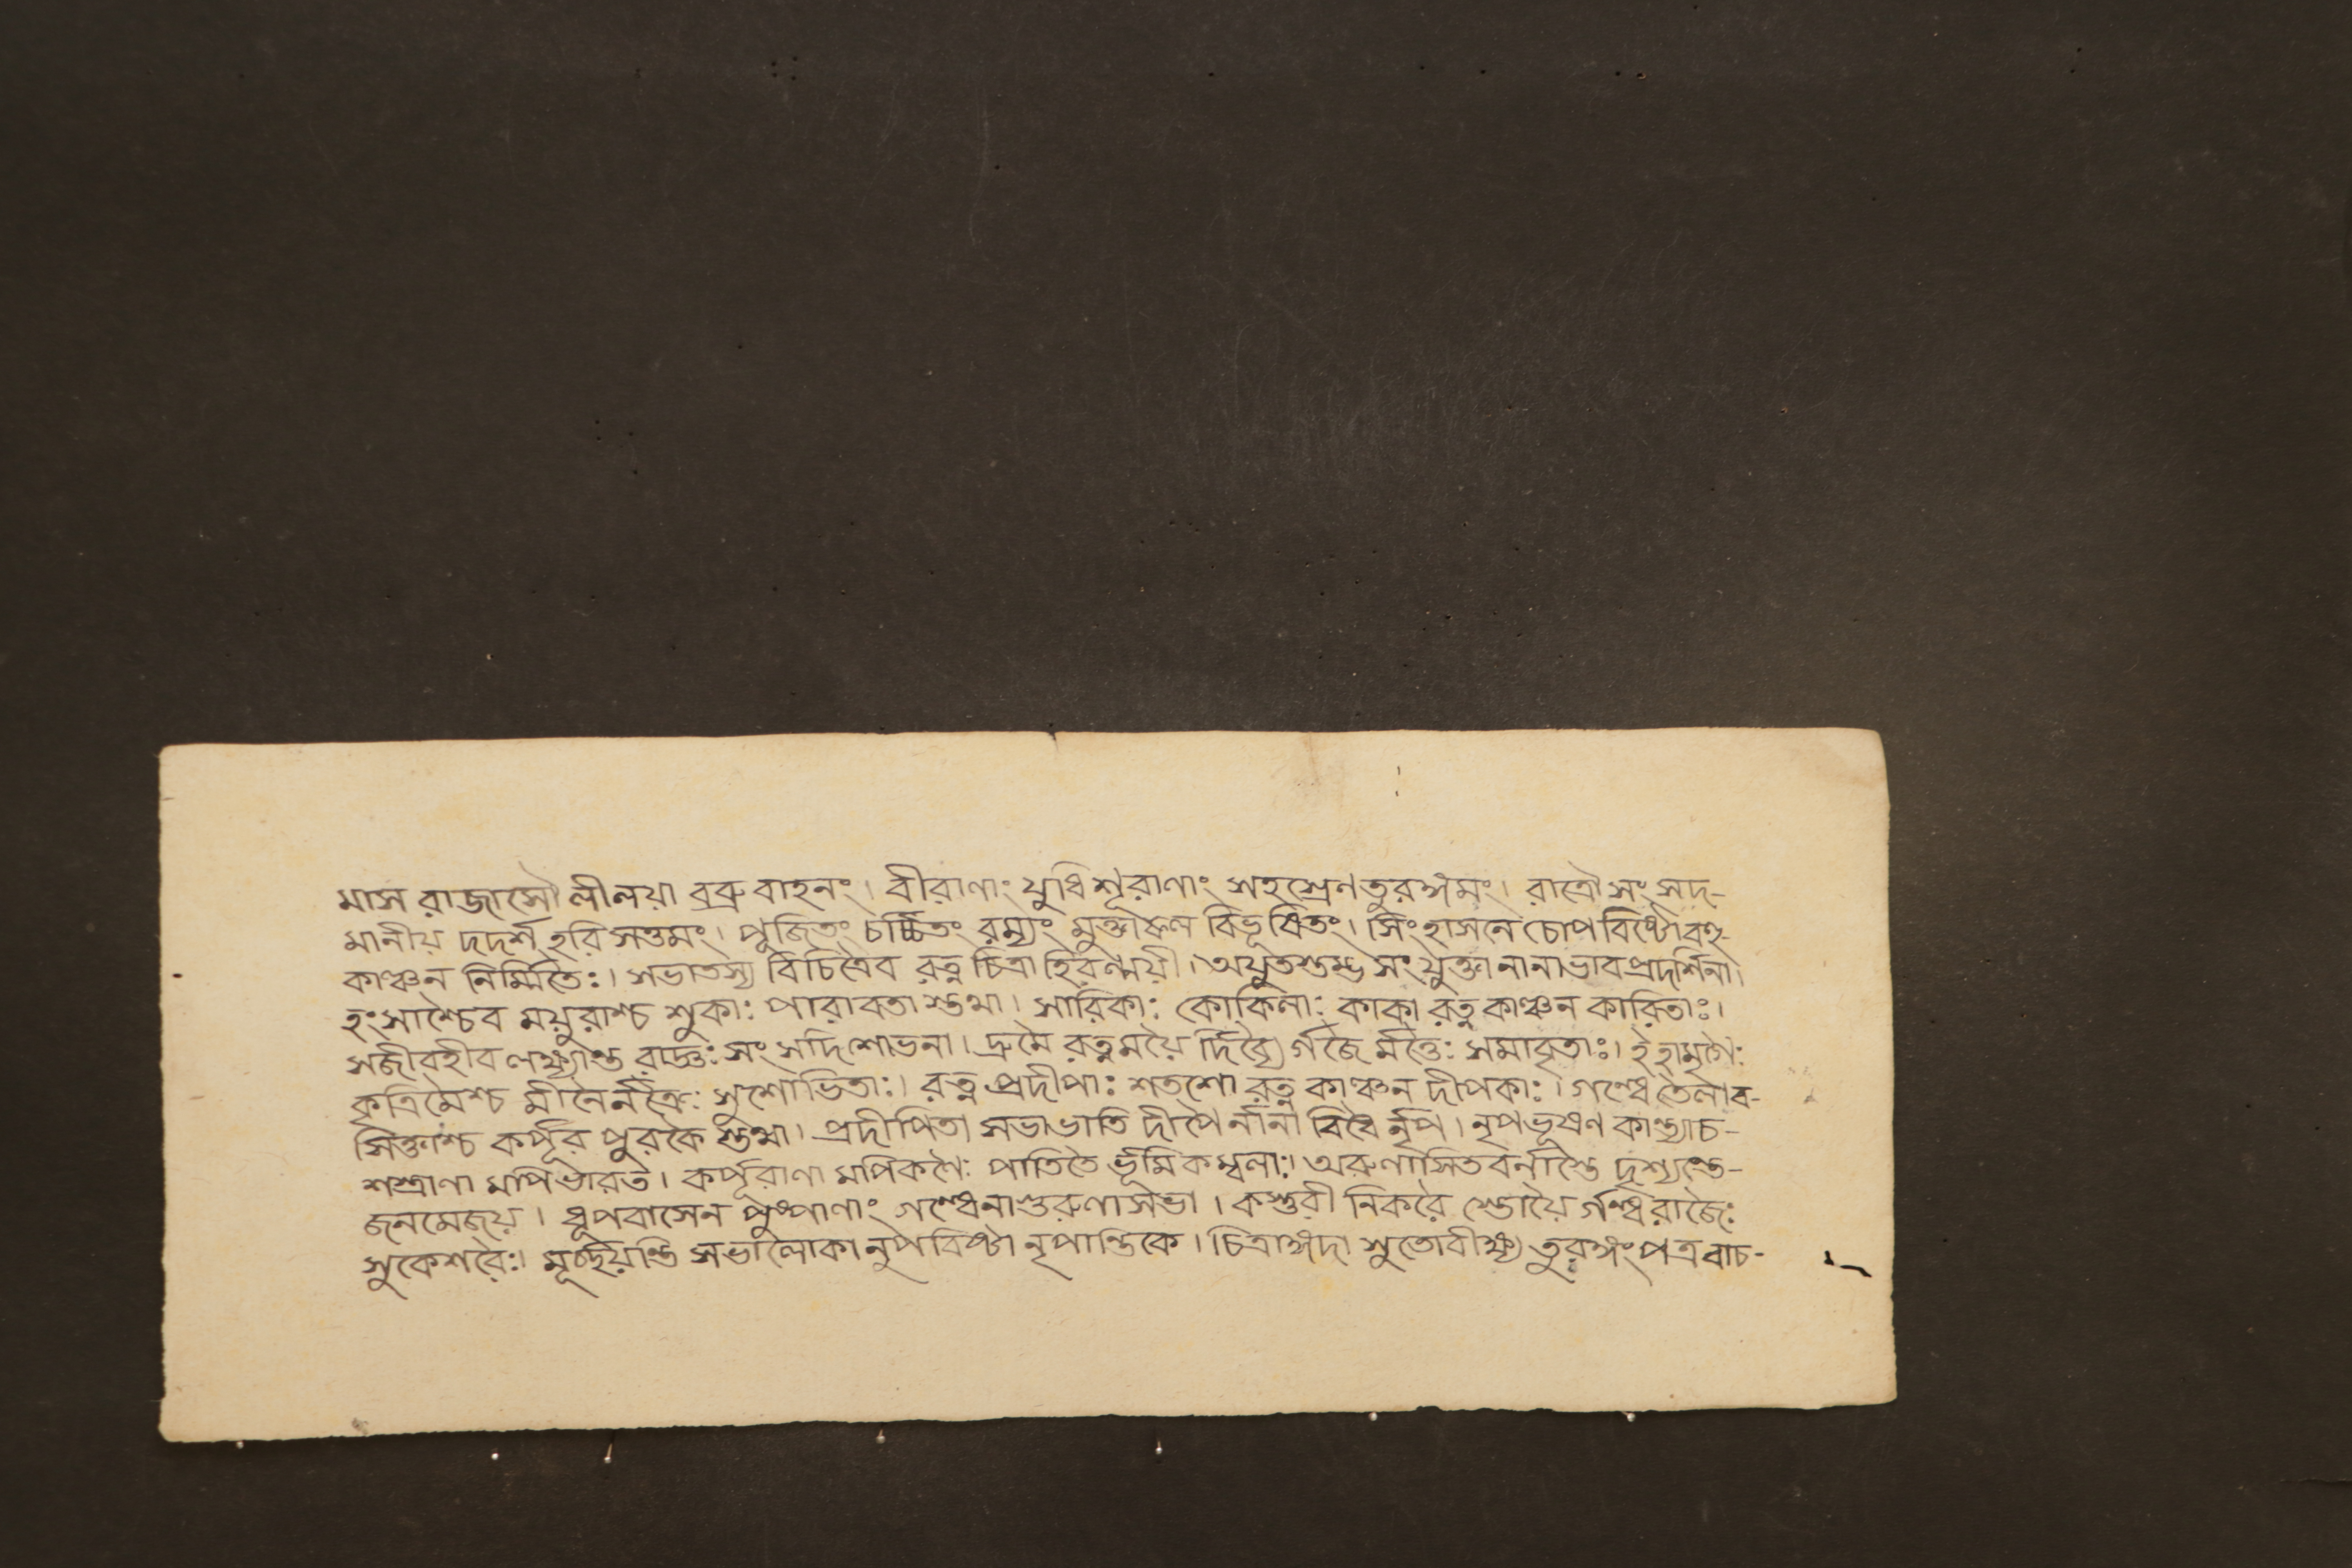 মাস রাজাসৌ লীলয়া বব্রু বাহনং। বীরাণাং যুধি শূরাণাং সহস্রেণ তুরঙ্গমং। রাত্রৌ সংসদ-
মানীয় দদর্শ হরি সত্তমং। পূজিতং চর্চ্চিতং রম্যং মুক্তাফল বিভূষিতং। সিংহাসনে চোপবিষ্টো বহু-
কাঞ্চন নির্ম্মিতৈঃ। সভাতস্য বিচিত্রৈব রত্ন চিত্রা হিরণ্ময়ী। অযুতস্তম্ভ সংযুক্তা নানাভাবপ্রদর্শিনী।
হংসাশ্চৈব ময়ুরাশ্চ শুকাঃ পারাবতা স্তথা। সারিকাঃ কোকিলাঃ কাকা রত্ন কাঞ্চন কারিতাঃ।
সজীবহীব লক্ষ্যন্তে রাজ্ঞঃ সংসদি শোভনা। দ্রুমৈ রত্নময়ৈ র্দিব্যৈ র্গজৈ র্মত্তৈঃ সমাবৃতাঃ। ইহামৃগৈঃ
কৃত্রিমৈশ্চ মীনৈর্নক্রৈঃ সুশোভিতাঃ। রত্ন প্রদীপাঃ শতশো রত্ন কাঞ্চন দীপকাঃ। গন্ধে তৈলাব-
সিক্তাশ্চ কর্পূর পুরকৈ স্তথা। প্রদীপিতা সভাভাতি দীপৈর্নানা বিধৈ র্নৃপ। নৃপভূষণ কান্ত্যাচ-
শস্ত্রাণা মপিভারত। কর্পূরাণা মপিকণৈঃ পাতিতৈ র্ভূমি কম্বলাঃ। অরুণাসিতবর্নাস্তৈ দৃশ্যন্তে-
জনমেজয়। ধূপবাসেন পুষ্পাণাং গন্ধেনাগুরুণাসভা। কস্তুরী নিকরৈ স্তোয়ৈ র্গন্ধরাজৈঃ
সুকেশরৈঃ। মূর্চ্ছয়ন্তি সভালোকা নুপবিষ্টা নৃপান্তিকে। চিত্রাঙ্গদা সুতোবীক্ষ্য তুরঙ্গং পত্র বাচ-